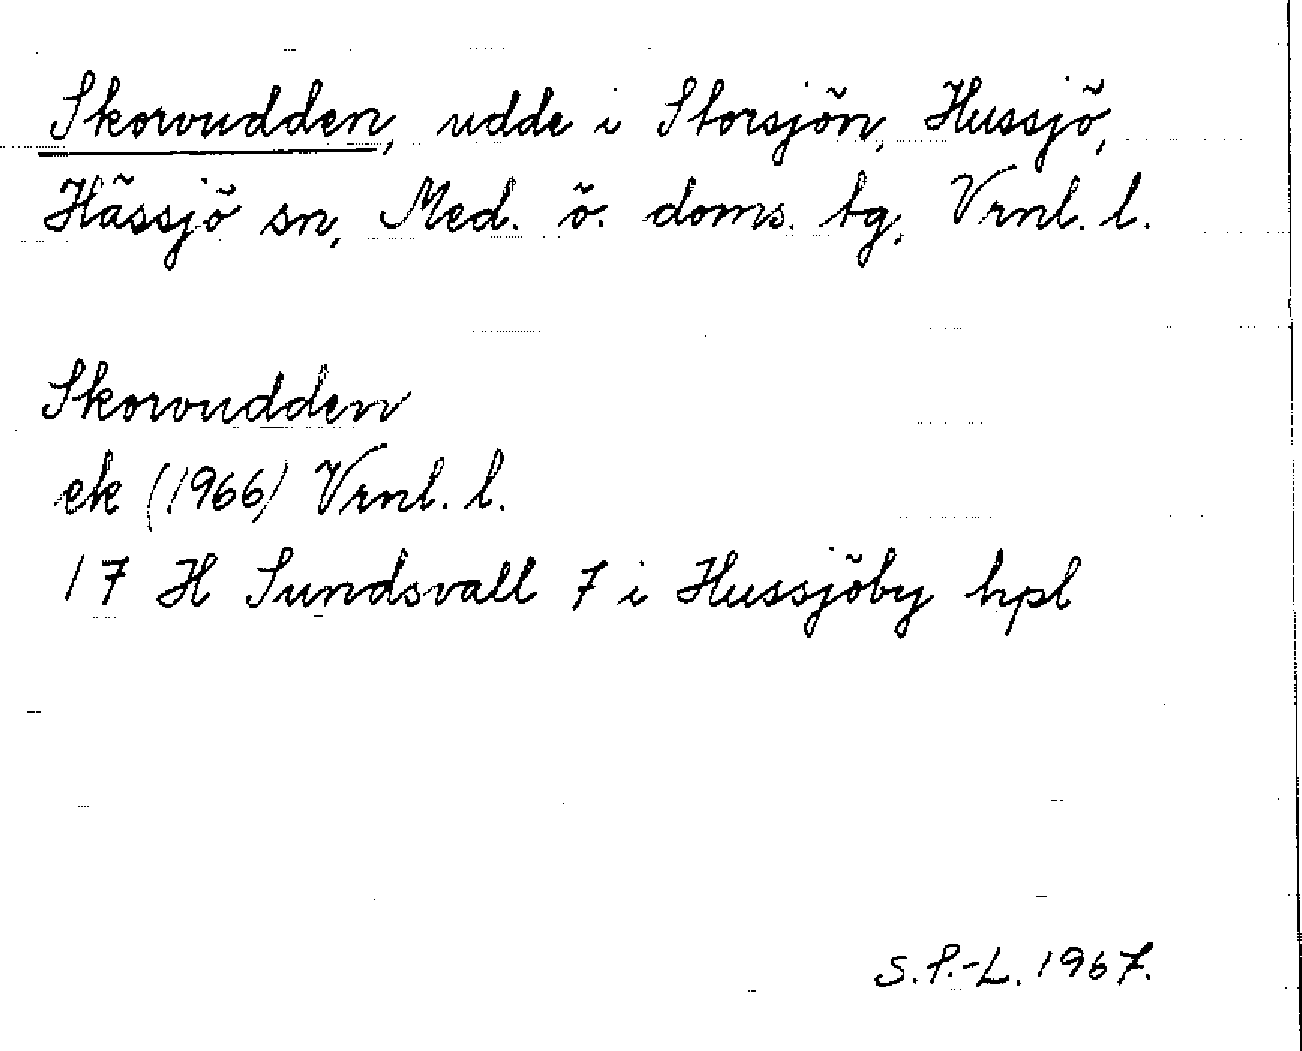 Skorvudden, udde i Storsjön, Hussjö,
Hässjö sn, Med. ö. doms. tg, Vrnl. l.
Skorvudden
ek (1966) Vrnl. l.
17 H Sundsvall 7 i Hussjöby hpl
S.P.-L. 1967.